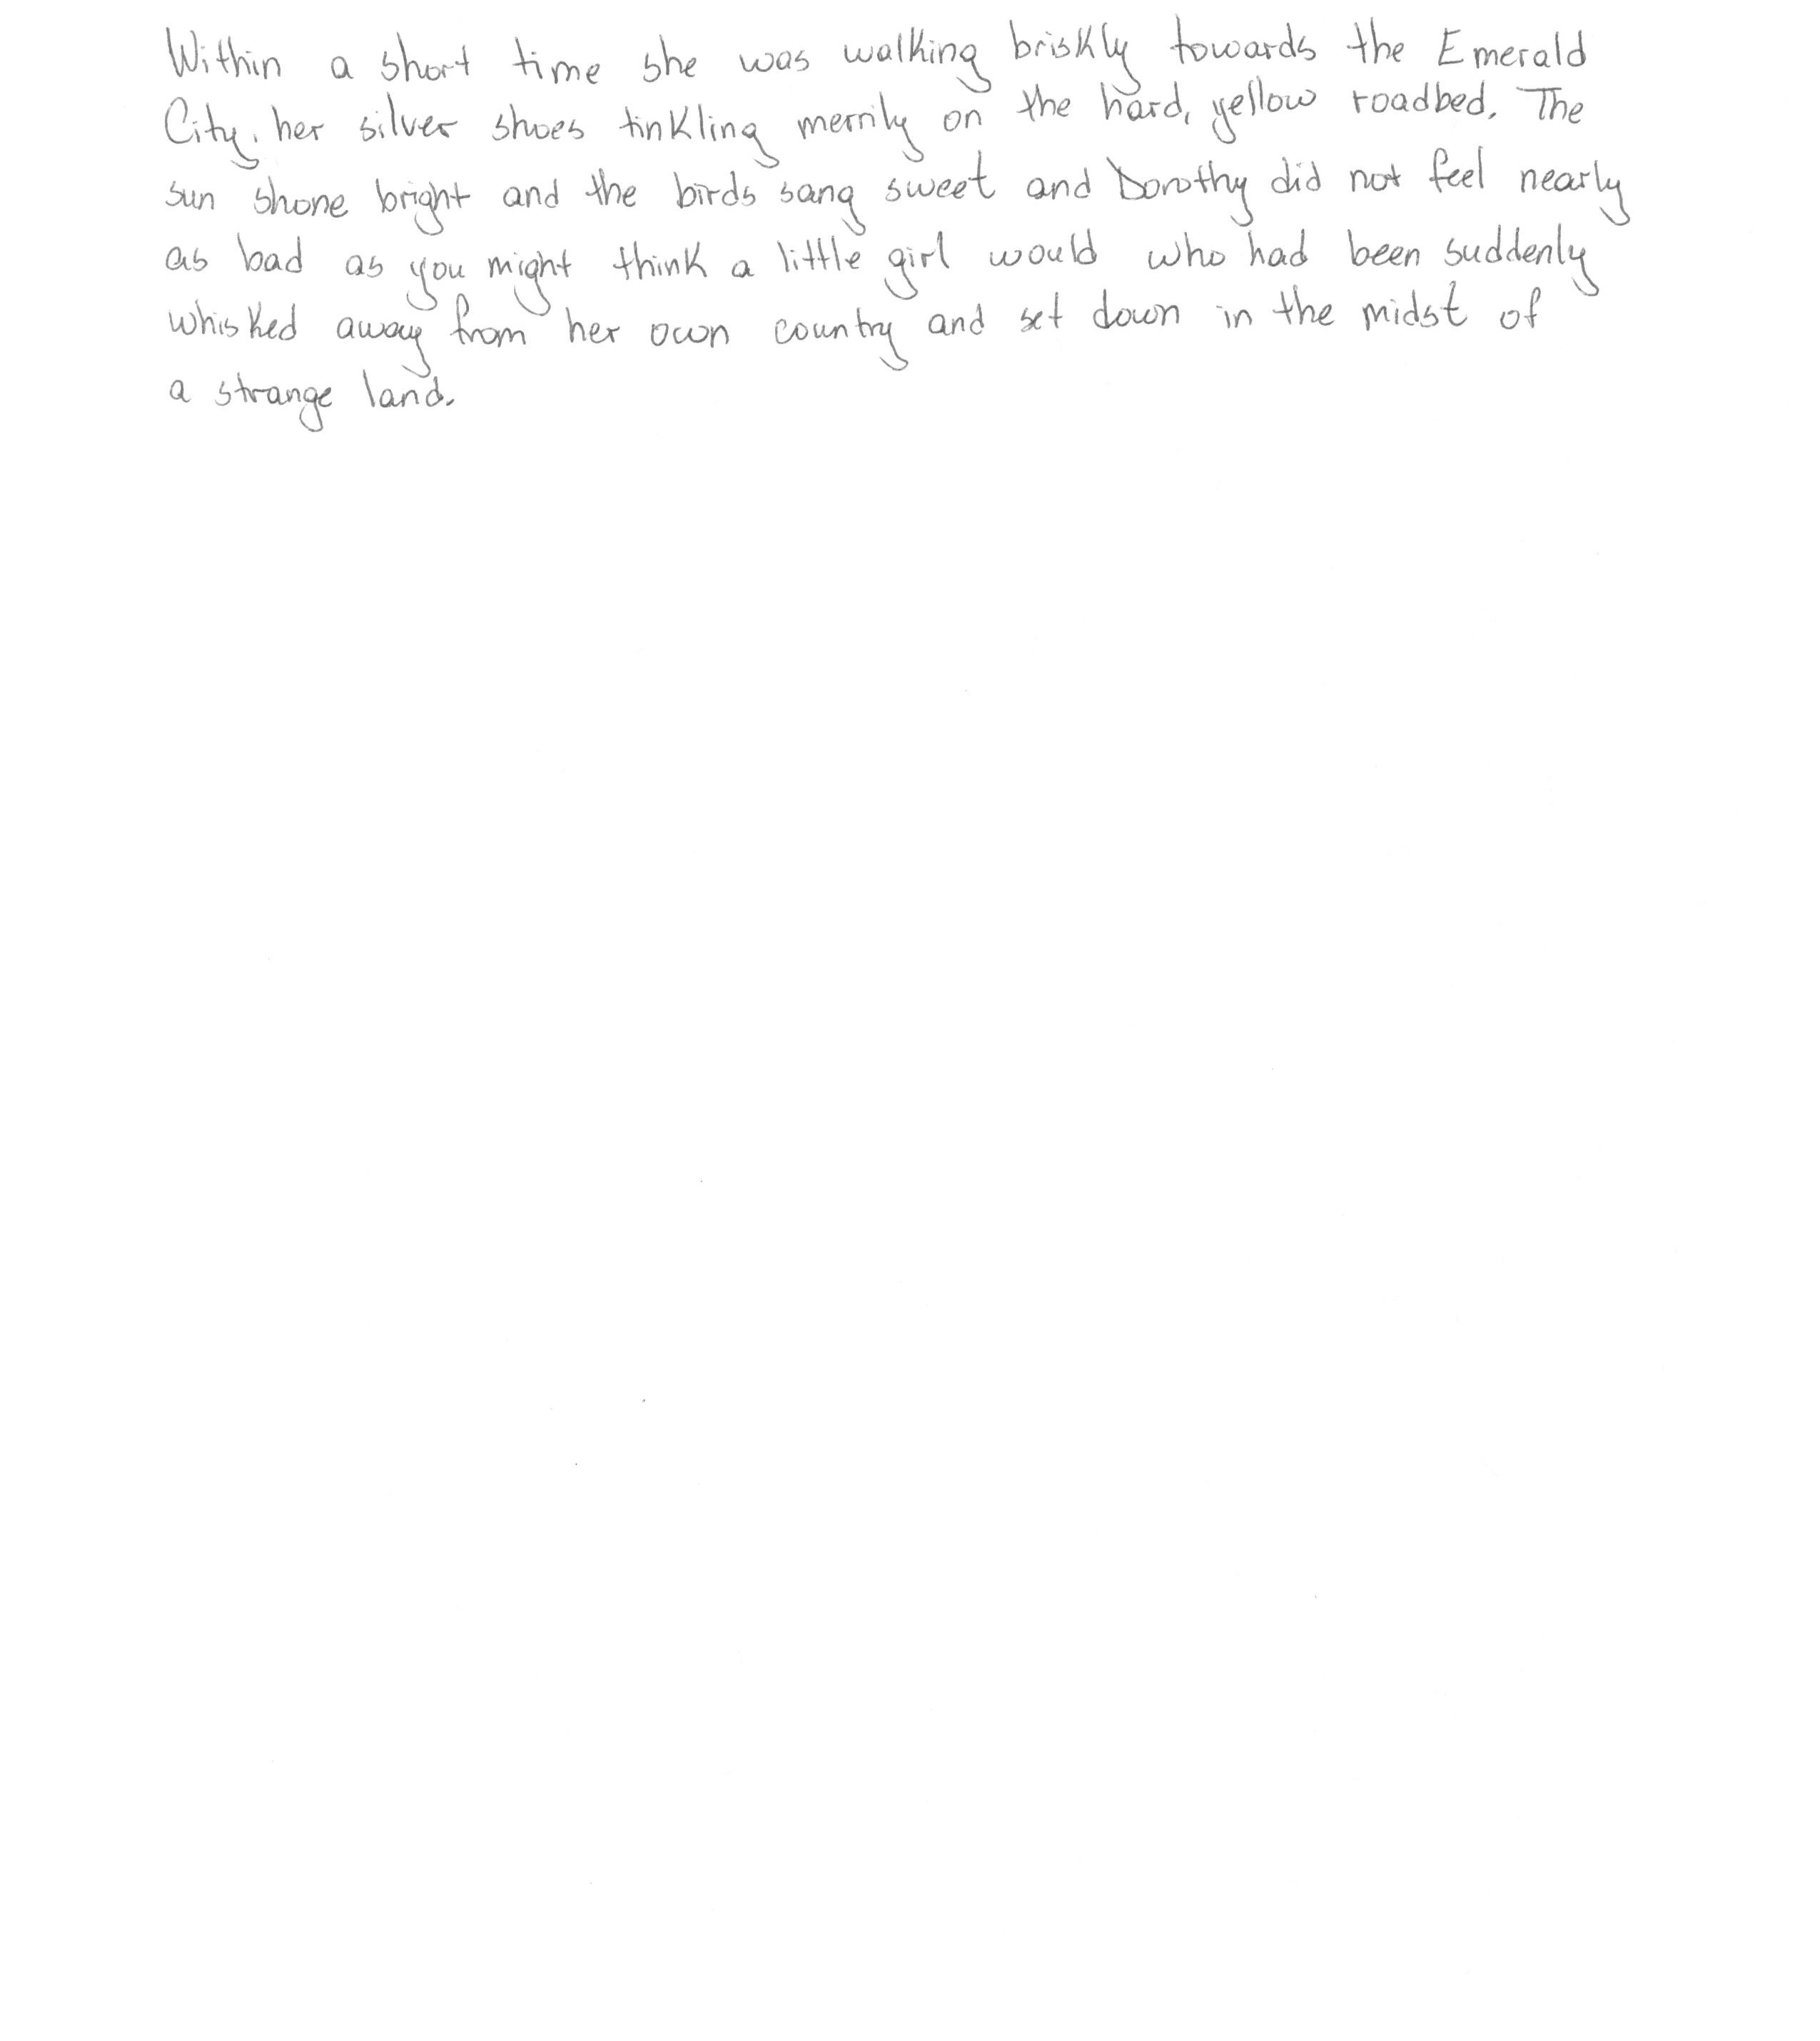 Within a short time she was walking briskly towards the Emerald
City, her silver shoes tinkling merrily on the hard, yellow roadbed. The
sun shone bright and the birds sang sweet and Dorothy did not feel nearly
as bad as you might think a little girl would who had been suddenly
whisked away from her own country and set down in the midst of
a strange land.